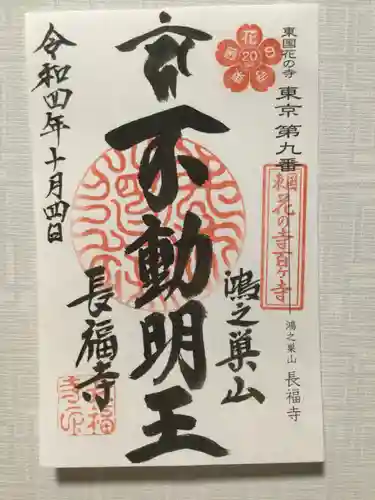 東国花の寺 東京 第九番
鴻之巣山 長福寺
東国花の寺百ヶ寺
花
20
鴻之巣山
不動明王
長福寺
令和四年十月四日